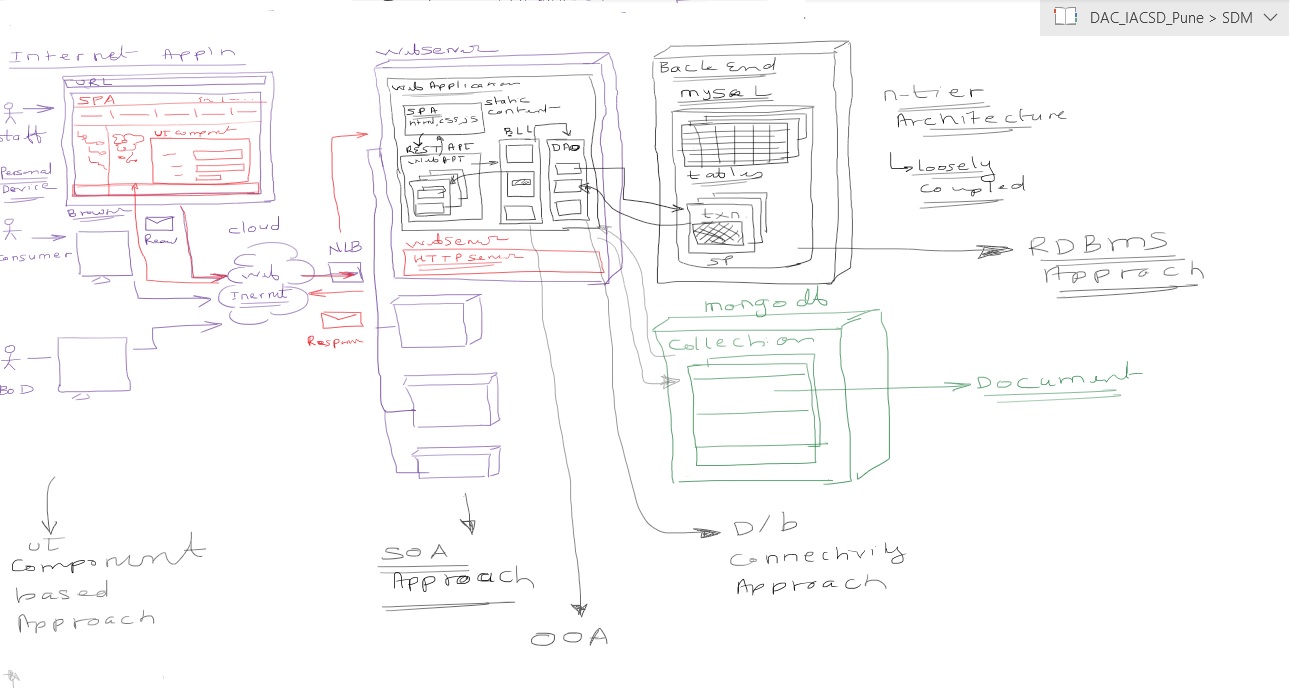 DAC_IACSD_Pune > SDM
Internet Appln
URL
SPA
UI component
staff
Personal
Device
Browser
onsumer
BoD
cloud
Web
Inernet
NLB
Webserver
Web Application
SPA
html,css,js
static
content
REST API
Web API
BLL
DAO
Webserver
HTTP server
Back End
mysqL
tables
txn
SP
n-tier
Architecture
Loosely
coupled
RDBMS
Approach
mongodb
Collection
Document
UI
Component
based
Approach
SOA
Approach
OOA
D/b
Connectivity
Approach